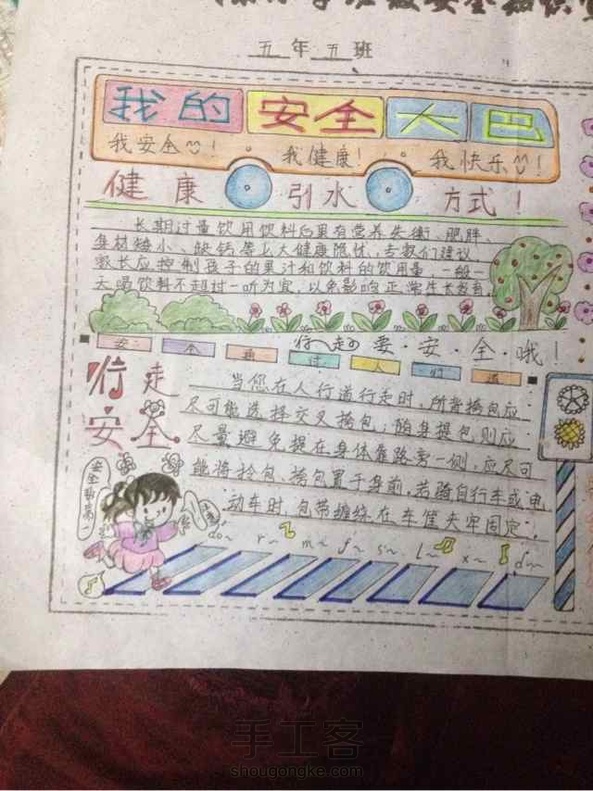 五年五班
我的安全大巴
我安全! 我健康! 我快乐!
健康引水方式!
长期过量饮用饮料后果有营养失衡、肥胖、
身材矮小、缺钙等六大健康隐忧,专家们建议,
家长应控制孩子的果汁和饮料的饮用量,一般一
天喝饮料不超过一听为宜,以免影响正常生长发育。
安全通过人行道
行走要·安·全·哦!
行走
安全
当您在人行道行走时,所背挎包应
尽可能选择交叉挎包;随身提包则应
尽量避免提在身体靠路旁一侧,应尽可
能将拎包、挎包置于身前,若骑自行车或电
动车时,包带缠绕在车筐夹牢固定。
安全
do~ r~ m~ f~ s~ L~ x~ d~
手工客
shougongke.com